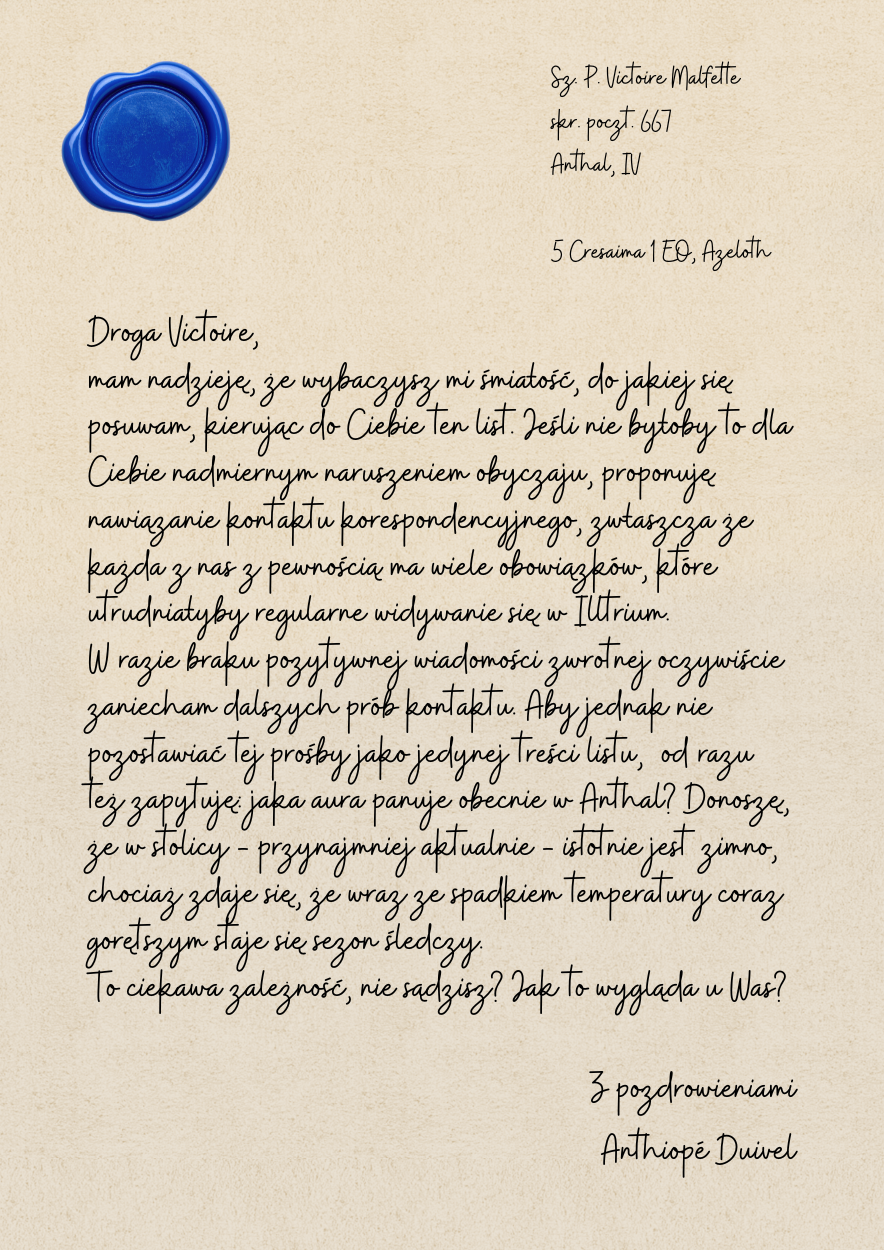 Sz. P. Victoire Malfette
skr. poczt. 667
Anthal, IV
5 Cresaima 1 EO, Azeloth
Droga Victoire,
mam nadzieję, że wybaczysz mi śmiałość, do jakiej się
posuwam, kierując do Ciebie ten list. Jeśli nie byłoby to dla
Ciebie nadmiernym naruszeniem obyczaju, proponuję
nawiązanie kontaktu korespondencyjnego, zwłaszcza że
każda z nas z pewnością ma wiele obowiązków, które
utrudniałyby regularne widywanie się w Illtrium.
W razie braku pozytywnej wiadomości zwrotnej oczywiście
zaniecham dalszych prób kontaktu. Aby jednak nie
pozostawiać tej prośby jako jedynej treści listu, od razu
też zapytuję: jaka aura panuje obecnie w Anthal? Donoszę,
że w stolicy - przynajmniej aktualnie - istotnie jest zimno,
chociaż zdaje się, że wraz ze spadkiem temperatury coraz
gorętszym staje się sezon śledczy.
To ciekawa zależność, nie sądzisz? Jak to wygląda u Was?
Z pozdrowieniami
Anthiopé Duivel